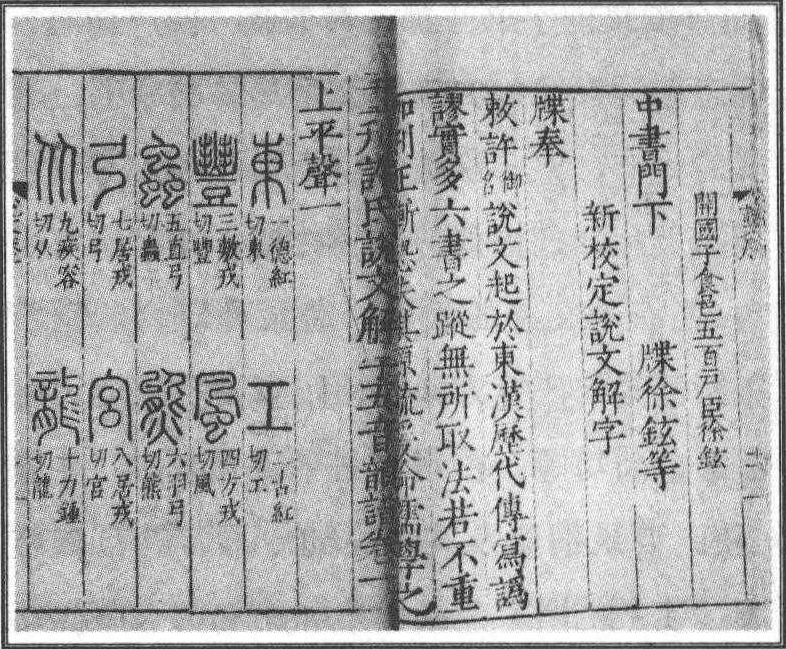 開國子食邑五百戶臣徐鉉
中書門下 牒徐鉉等
新校定說文解字
牒奉
敕許御名說文起於東漢歷代傳寫譌
謬實多六書之蹤無所取法若不重
加刊正漸恐失其原流爰命儒學之
許氏說文解字五音韻譜卷一
上平聲一
東 一德紅切東 工 二古紅切工
豐 三敷戎切豐 風 四方戎切風
蟲 五直弓切蟲 熊 六羽弓切熊
弓 七居戎切弓 宮 八居戎切宮
从 九疾容切从 龍 十力鍾切龍